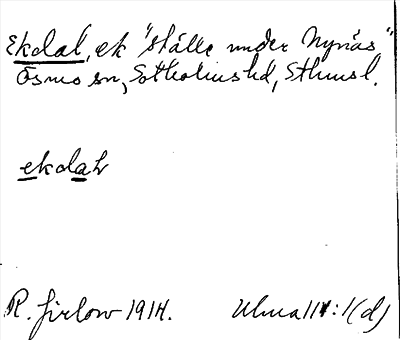 Ekdal, ek "ställe under Nynäs"
Ösmo sn, Sotholms hd, Sthms l.
ekdaɫ
R. Jirlow 1914. Ulma 111:1(d)